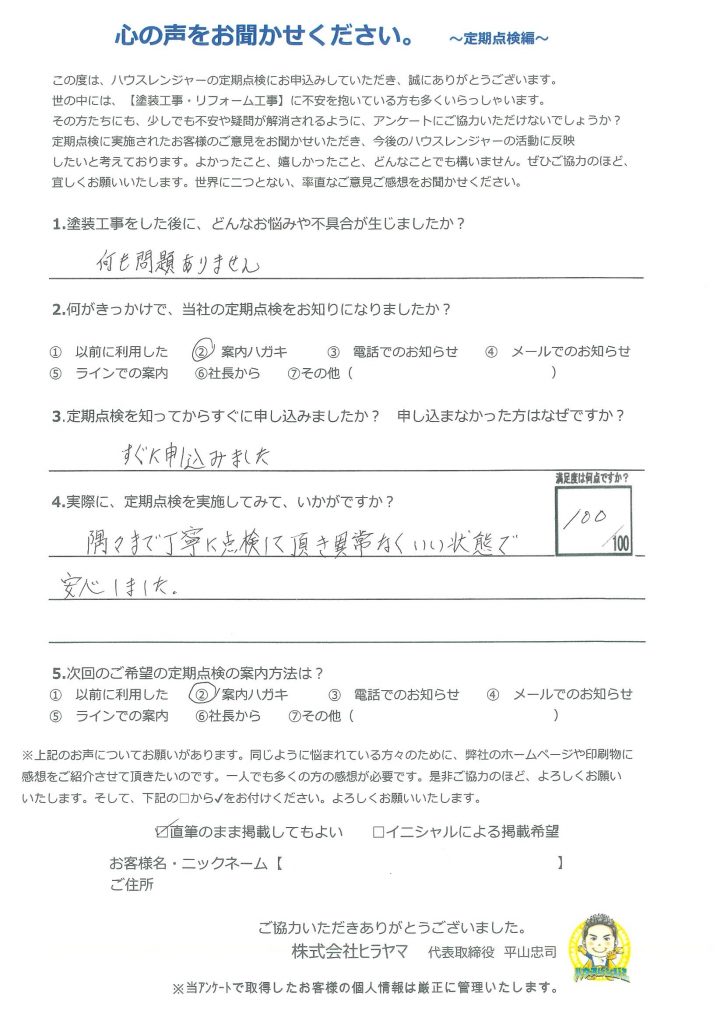 心の声をお聞かせください。 ～定期点検編～
この度は、ハウスレンジャーの定期点検にお申込みしていただき、誠にありがとうございます。
世の中には、【塗装工事・リフォーム工事】に不安を抱いている方も多くいらっしゃいます。
その方たちにも、少しでも不安や疑問が解消されるように、アンケートにご協力いただけないでしょうか？
定期点検に実施されたお客様のご意見をお聞かせいただき、今後のハウスレンジャーの活動に反映
したいと考えております。よかったこと、嬉しかったこと、どんなことでも構いません。ぜひご協力のほど、
宜しくお願いいたします。世界に二つとない、率直なご意見ご感想をお聞かせください。
1.塗装工事をした後に、どんなお悩みや不具合が生じましたか？
何も問題ありません
2.何がきっかけで、当社の定期点検をお知りになりましたか？
① 以前に利用した ② 案内ハガキ ③ 電話でのお知らせ ④ メールでのお知らせ
⑤ ラインでの案内 ⑥社長から ⑦その他（ ）
3.定期点検を知ってからすぐに申し込みましたか？ 申し込まなかった方はなぜですか？
すぐに申込みました
満足度は何点ですか？
4.実際に、定期点検を実施してみて、いかがですか？
100
/100
隅々まで丁寧に点検して頂き異常なくいい状態で
安心しました。
5.次回のご希望の定期点検の案内方法は？
① 以前に利用した ② 案内ハガキ ③ 電話でのお知らせ ④ メールでのお知らせ
⑤ ラインでの案内 ⑥社長から ⑦その他（ ）
※上記のお声についてお願いがあります。同じように悩まれている方々のために、弊社のホームページや印刷物に
感想をご紹介させて頂きたいのです。一人でも多くの方の感想が必要です。是非ご協力のほど、よろしくお願い
いたします。そして、下記の□から✓をお付けください。よろしくお願いいたします。
☑直筆のまま掲載してもよい □イニシャルによる掲載希望
お客様名・ニックネーム【 】
ご住所
ご協力いただきありがとうございました。
株式会社ヒラヤマ 代表取締役 平山忠司
※当アンケートで取得したお客様の個人情報は厳正に管理いたします。